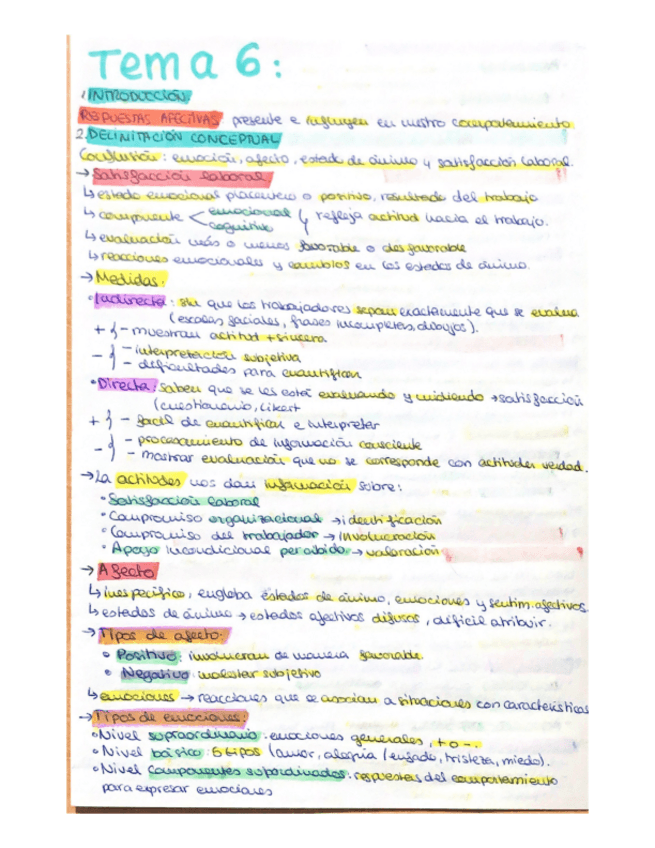 Tema 6:
1. INTRODUCCIÓN:
RESPUESTAS AFECTIVAS presente e influyen en nuestro comportamiento
2. DELIMITACIÓN CONCEPTUAL
Confusión: emoción, afecto, estado de ánimo y satisfacción laboral.
→ Satisfacción laboral
↳ estado emocional placentero o positivo, resultado del trabajo
↳ componente < emocional
cognitivo
↳ refleja actitud hacia el trabajo.
↳ evaluación más o menos favorable o desfavorable
↳ reacciones emocionales y cambios en los estados de ánimo.
→ Medidas:
• Indirecta: sin que los trabajadores sepan exactamente que se evalua
(escalas faciales, frases incompletas, dibujos).
+ { - muestran actitud + sincera
- { - interpretación subjetiva
- dificultades para cuantificar
• Directa: saben que se les está evaluando y midiendo → satisfacción
(cuestionario, Likert
+ { - facil de cuantificar e interpreter
- { - procesamiento de información consciente
- mostrar evaluación que no se corresponde con actitudes verdad.
→ La actitudes nos dan información sobre:
• Satisfacción laboral
• Compromiso organizacional → identificación
• Compromiso del trabajador → involucración
• Apoyo incondicional percibido → valoración
→ Afecto
↳ inespecífico, engloba estados de ánimo, emociones y sentim. afectivos
↳ estados de ánimo → estados afectivos difusos, difícil atribuir.
→ Tipos de afecto:
• Positivo: involucran de manera favorable.
• Negativo: malestar subjetivo
↳ emociones → reacciones que se asocian a situaciones con características
→ Tipos de emociones:
• Nivel supraordinario: emociones generales, + o -.
• Nivel básico: 6 tipos (amor, alegría / enfado, tristeza, miedo).
• Nivel componentes subordinados: respuestas del comportamiento
para expresar emociones